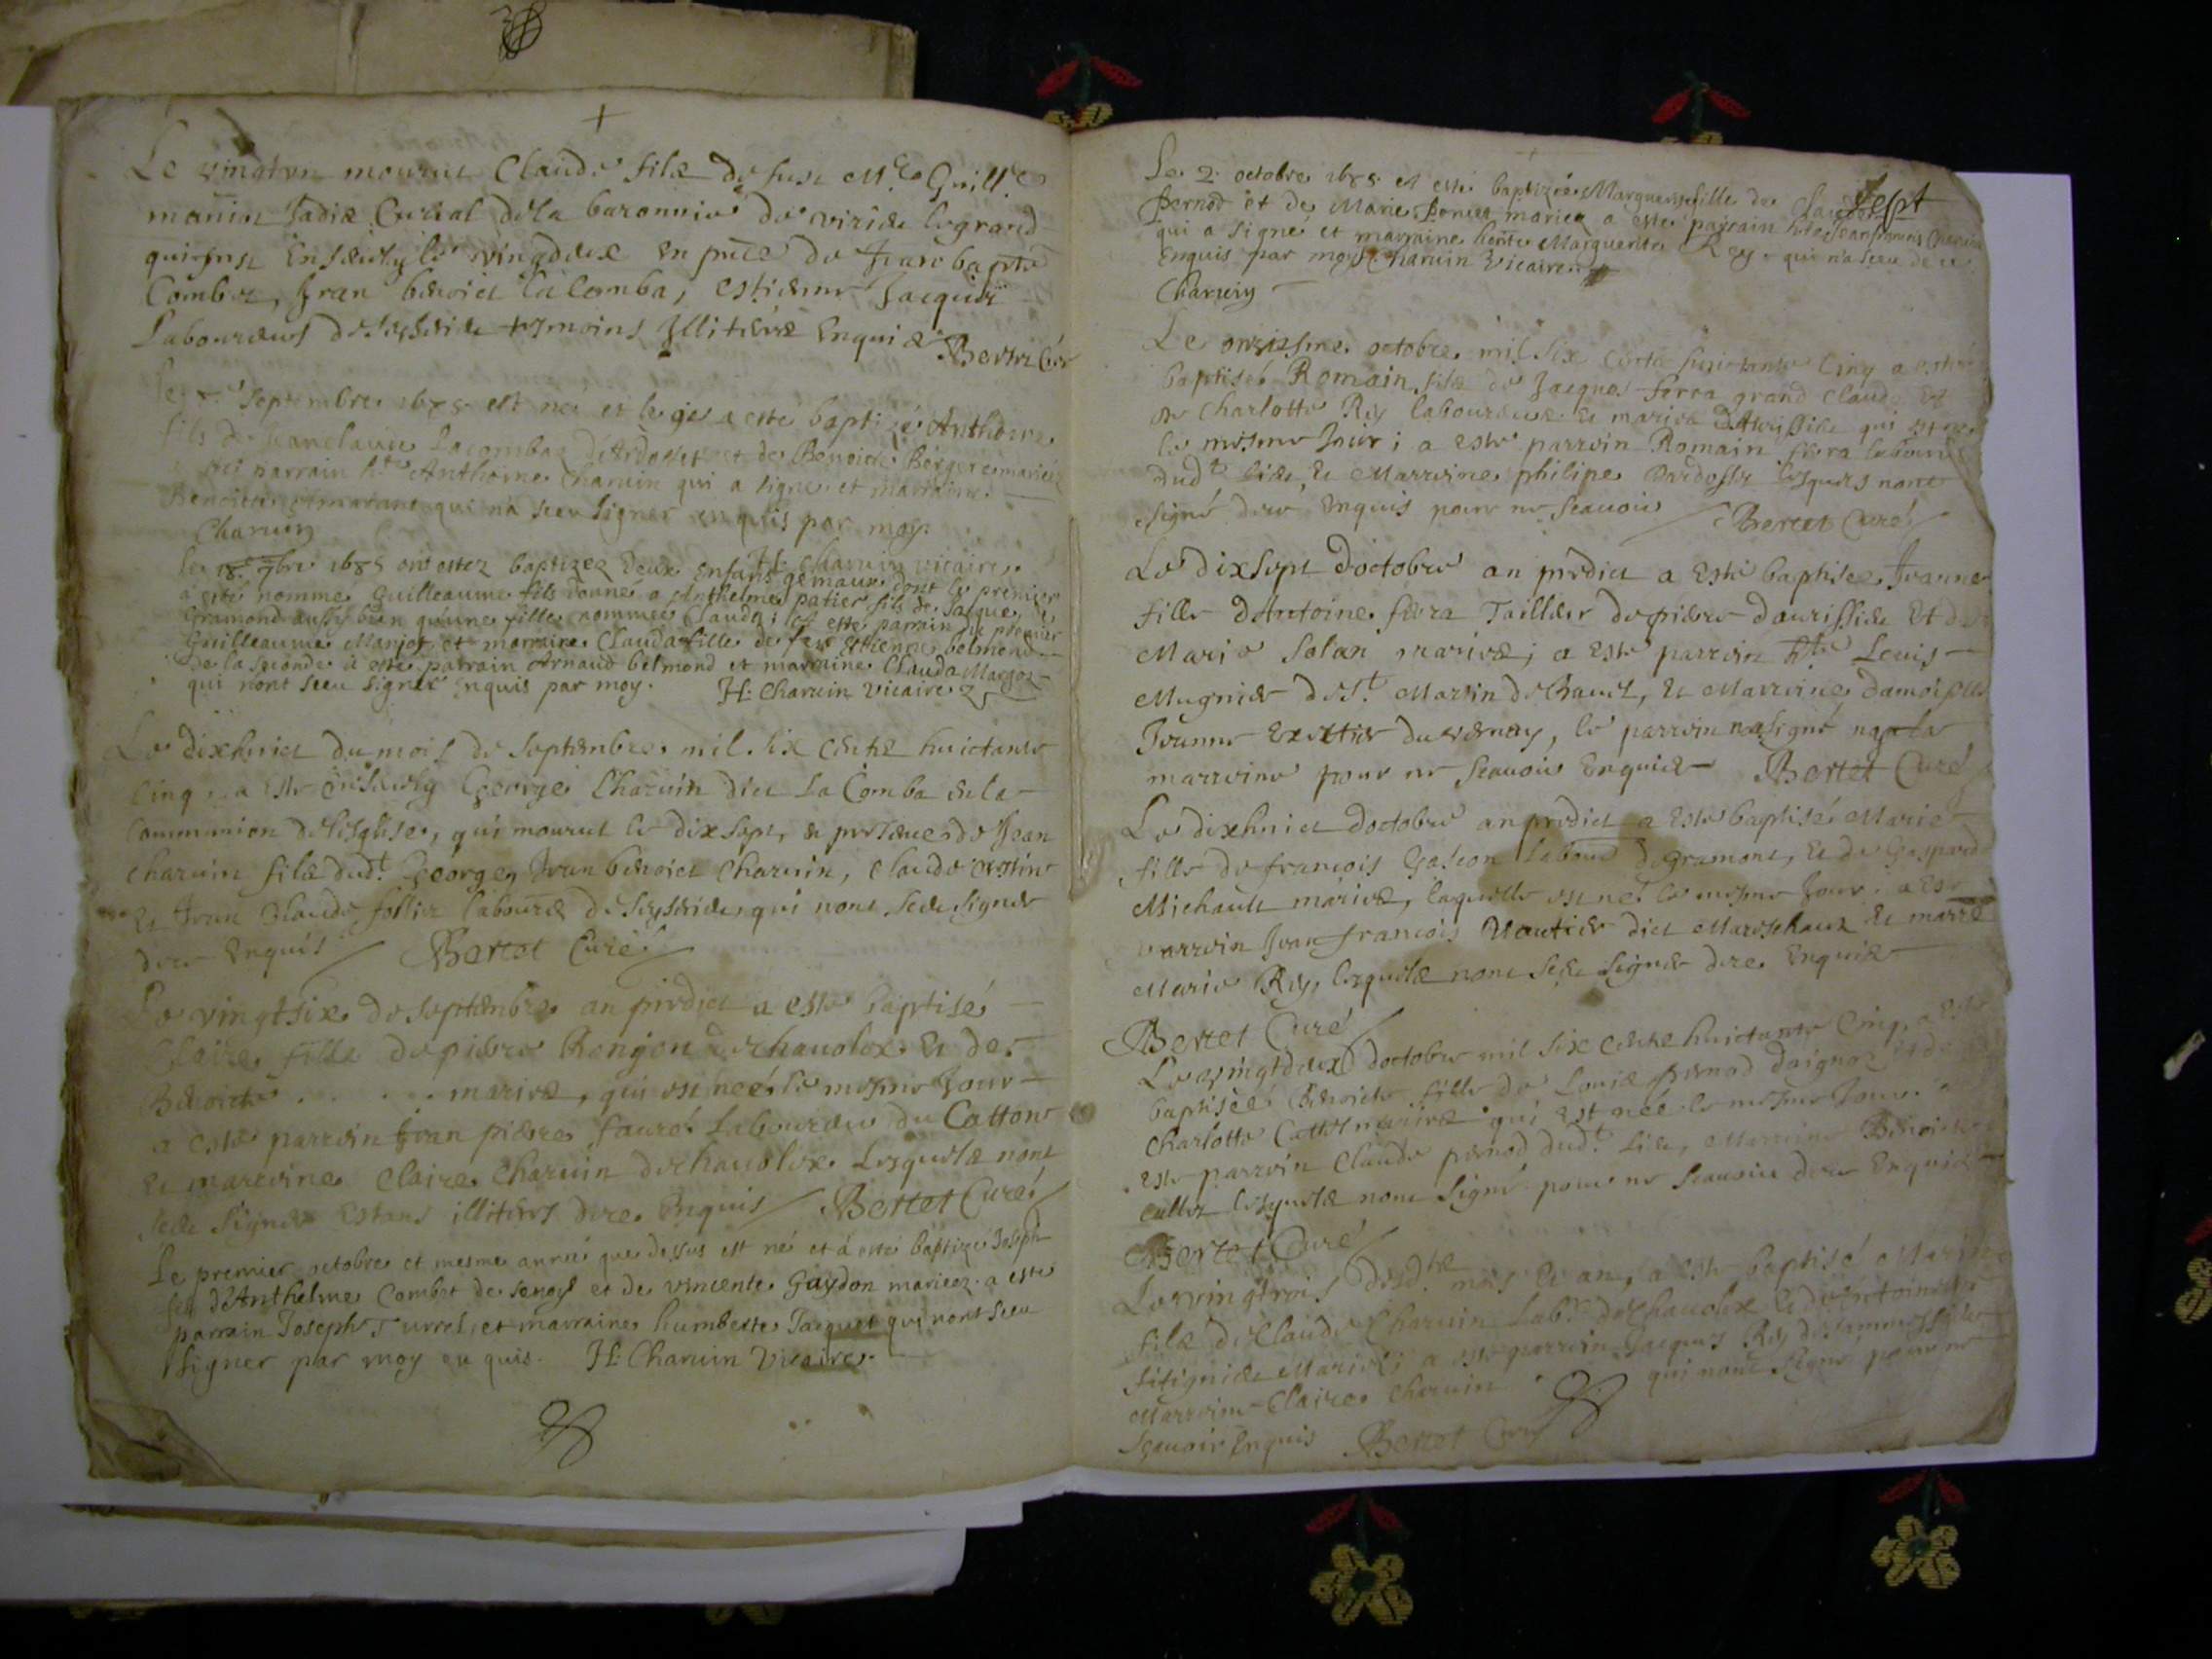 Le vingtun mourut Claude filz de feu Mre Guille
manin Jadis Curial de la baronnie de virieu le grand
qui fust Ensevely le vingdeux En pnce de Jean bapte
Combet, Jean benoict la Comba, estienne Jacquin
Laboureurs de tesmoins Illiteres Enquis Bertet Curé
Septembre 1685 est né et le 9e a esté baptizé Anthoine
fils de Jeanclaude Lacombaz d'Ardosset et de Benoicte Bergere mariez
parrain ht Anthoine Charuin qui a signe et marraine
Benoicte qui n'a sceu signer enquis par moy.
Charuin H. Charuin vicaire
le 18e 7bre 1685 ont estez baptizez deux enfans gemaux dont le premier
a esté nommé Guilleaume fils donné a Anthelme patier fils de Jacque de
Gramond aussy bien qu'une fille nommée Clauda; a esté parrain du premier
Guilleaume Marjoz et marraine Clauda fille de feu Estienne belmond
de la seconde a esté parrain Arnaud belmond et marraine Clauda Marjoz
qui n'ont sceu signer enquis par moy. H: Charuin vicaire
Le dixhuict du mois de Septembre mil six centz huictante
Cinq a esté ensevely George Charuin dict La Comba de la
Communion de l'esglise, qui mourut le dixsept, en presence de Jean
Charuin filz dudt George, Jean benoict Charuin, Claude
Et Jean Claude follier laboureurs de qui n'ont sceu signer
de ce Enquis Bertet Curé
Le vingtsixe de septembre an predict a esté baptisé
Claire fille de pierre Ronjon de Chavolex Et de
Benoicte . . . . . mariez, qui est neé le mesme Jour
a esté parrein Jean pierre fauré Laboureur du Catton
Et marreine Claire Charuin de Chavolex Lesquelz n'ont
sceu Signer Estans illiters de ce Enquis Bertet Curé
Le premier octobre et mesme année que dessus est né et a esté baptizé Joseph
filz d'Anthelme Combet de senoy et de vincente Gaydon mariez. a esté
parrain Joseph Turrel, et marraine humberte Jacquet qui n'ont sceu
signer par moy enquis. H: Charuin Vicaire.
Sept
Le 2 octobre 1685 a esté baptizée Marguerite fille de Claude
pernod et de Marie mariez a esté parrain ht Jean francois
qui a signé et marraine honte Marguerite Rey. qui n'a sceu de ce
Enquis par moy Charuin vicaire
Charuin
Le onziesme octobre mil six centz huictante Cinq a esté
baptisé Romain filz de Jacque ferra grand Claude Et
de Charlotte Rey laboureurs Et mariez qui est né
le mesme Jour; a esté parrein Romain ferra laboureur
dudt lieu, Et Marreine philipe lesquels n'ont
signé de ce Enquis pour ne scauoir Bertet Curé
Le dixsept d'octobre an predict a esté baptisée Jeanne
fille d'Antoine ferra Tailleur de pierre d'aurissieu Et de
Marie Solan mariez; a esté parrein ht Louis
Mugnier de St Martin de Bauel, Et Marreine damoiselle
Jeanne du vernay, le parrein n'a signé ny la
marreine pour ne scauoir Enquis Bertet Curé
Le dixhuict d'octobre an predict a esté baptisé Marie
fille de francois Gascon labour de gramont, Et de Gasparde
Michault mariez, laquelle est neé le mesme Jour. a esté
parrein Jean francois dict Mareschaux Et marre
Marie Rey, lesquelz n'ont sceu signer de ce Enquis
Bertet Curé
Le vingtdeux d'octobre mil six centz huictante Cinq, a esté
baptisée Benoicte fille de Louis pernod d'aignoz Et de
Charlotte mariez qui est neé le mesme Jour. a
esté parrein Claude pernod dudt lieu, Marreine Benoicte
Cullet lesquelz n'ont signé pour ne scauoir de ce Enquis
Bertet Curé
Le vingtrois desdt mois Et an, a esté baptisé
filz de Claude Charuin Labr de Chavolex Et d'Antoinette
mariez; a esté parrein Jacques Rey
Marreine Claire Charuin qui n'ont signé pour ne
scauoir Enquis Bertet Curé